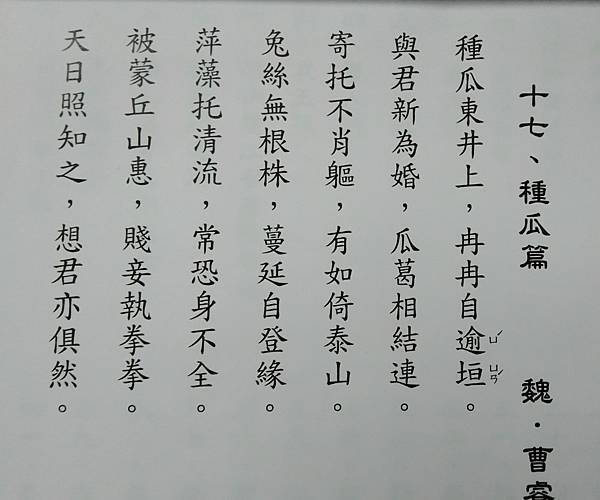 十七、種瓜篇 魏．曹睿
種瓜東井上，冉冉自逾ㄩˊ垣ㄩㄢˊ。
與君新為婚，瓜葛相結連。
寄托不肖軀，有如倚泰山。
兔絲無根株，蔓延自登緣。
萍藻托清流，常恐身不全。
被蒙丘山惠，賤妾執拳拳。
天日照知之，想君亦俱然。